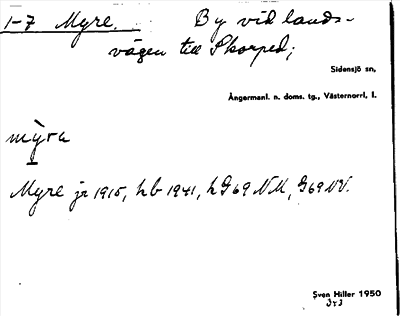 1-7 Myre. By vid lands-
vägen till Skorped;
Sidensjö sn,
Ångermanl. n. doms. tg., Västernorrl, l.
mỳra
Myre jr 1915, hb 1941, hG69NM, G69NV.
Sven Hiller 1950